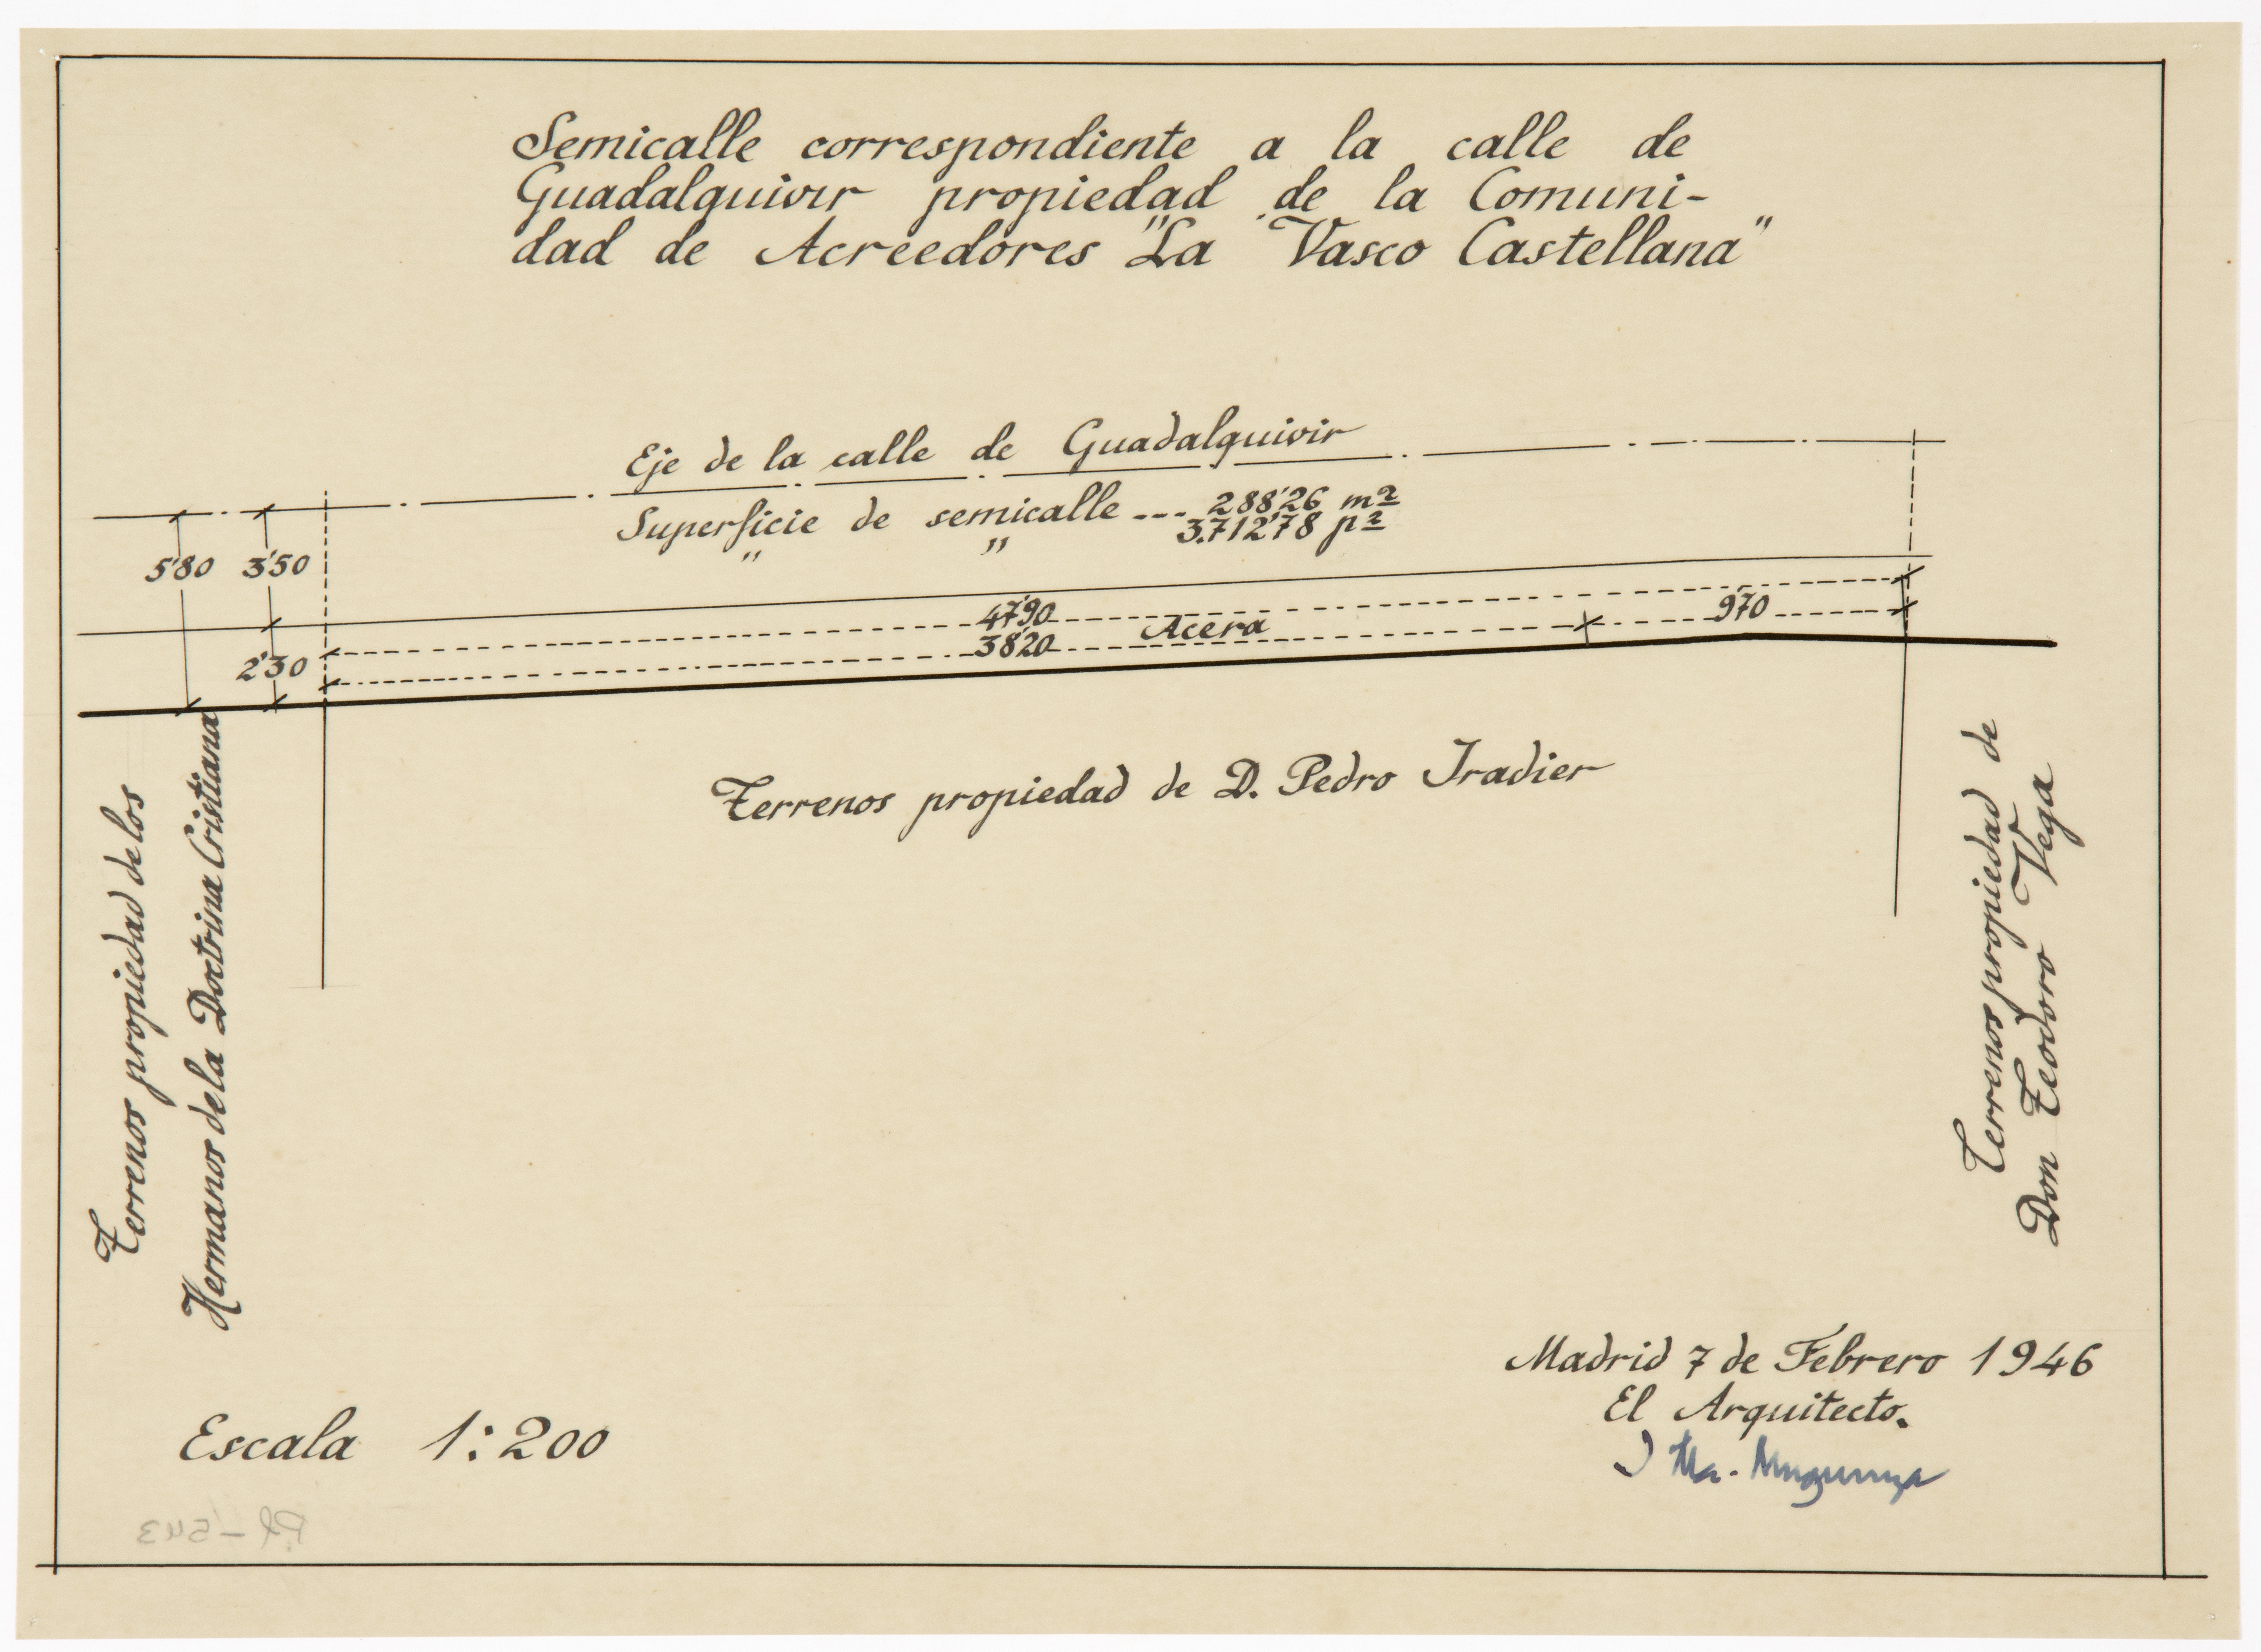 Semicalle correspondiente a la calle de
Guadalquivir propiedad de la Comuni-
dad de Acreedores "La Vasco Castellana"
Eje de la calle de Guadalquivir
Superficie de semicalle --- 288'26 m²
" " 3.712'78 p²
5'80 3'50
47'90
Acera
9'70
38'20
2'30
Terrenos propiedad de D. Pedro Iradier
Terrenos propiedad de los
Hermanos de la Doctrina Cristiana
Terrenos propiedad de
Don Teodoro Vega
Madrid 7 de Febrero 1946
El Arquitecto.
Escala 1:200
Pl-543